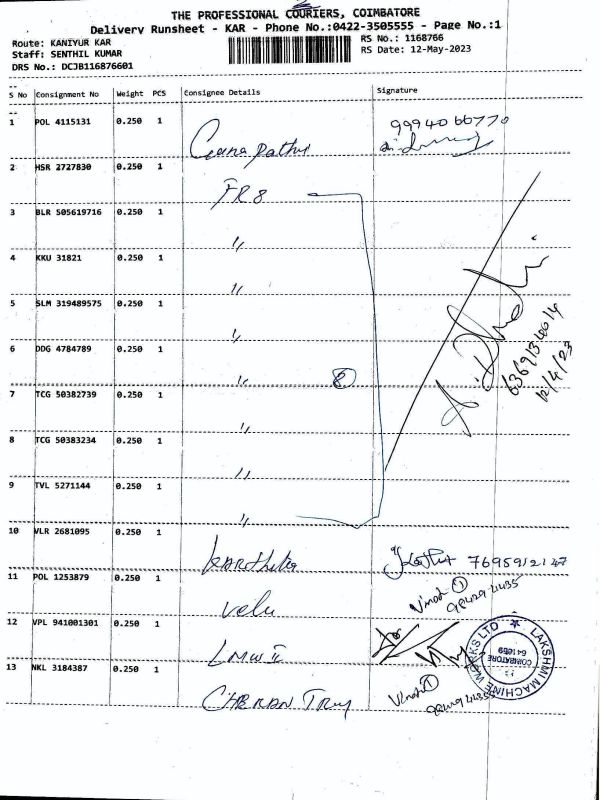 THE PROFESSIONAL COURIERS, COIMBATORE
Delivery Runsheet - KAR - Phone No.:0422-3505555 - Page No.:1
Route: KANIYUR KAR
RS No.: 1168766
Staff: SENTHIL KUMAR
RS Date: 12-May-2023
DRS No.: DCJB116876601
S No Consignment No Weight PCS Consignee Details Signature
1 POL 4115131 0.250 1 9994066770
Ganapathy
2 HSR 2727830 0.250 1
FR8
3 BLR 505619716 0.250 1
"
4 KKU 31821 0.250 1
"
5 SLM 319489575 0.250 1
"
6 DDG 4784789 0.250 1
" 8
7 TCG 50382739 0.250 1
"
8 TCG 50383234 0.250 1
"
9 TVL 5271144 0.250 1
"
6369134014
12/4/23
10 VLR 2681095 0.250 1
Karthika 7695912147
11 POL 1253879 0.250 1
Velu Vinod 1
12 VPL 941001301 0.250 1
LMW II
13 NKL 3184387 0.250 1
Vinod 1
LAKSHMI MACHINE WORKS LTD
COIMBATORE